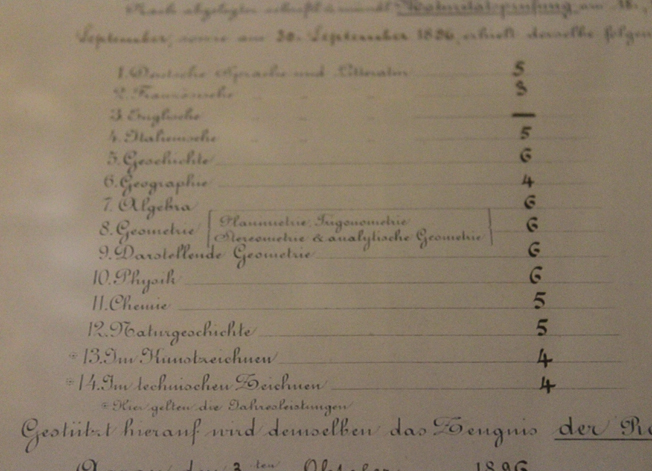 Nach abgelegter schriftl. & mündl. Maturitätsprüfung am 18.,
September, sowie am 30. September 1896, erhielt derselbe folgen
1. Deutsche Sprache und Litteratur 5
2. Französische " " 3
3. Englische " " —
4. Italienische " " 5
5. Geschichte 6
6. Geographie 4
7. Algebra 6
8. Geometrie [Planimetrie, Trigonometrie 6
Stereometrie & analytische Geometrie]
9. Darstellende Geometrie 6
10. Physik 6
11. Chemie 5
12. Naturgeschichte 5
* 13. Im Kunstzeichnen 4
* 14. Im technischen Zeichnen 4
* Hier gelten die Jahresleistungen
Gestützt hierauf wird demselben das Zeugnis der Re
Aarau den 3ten Oktober 1896